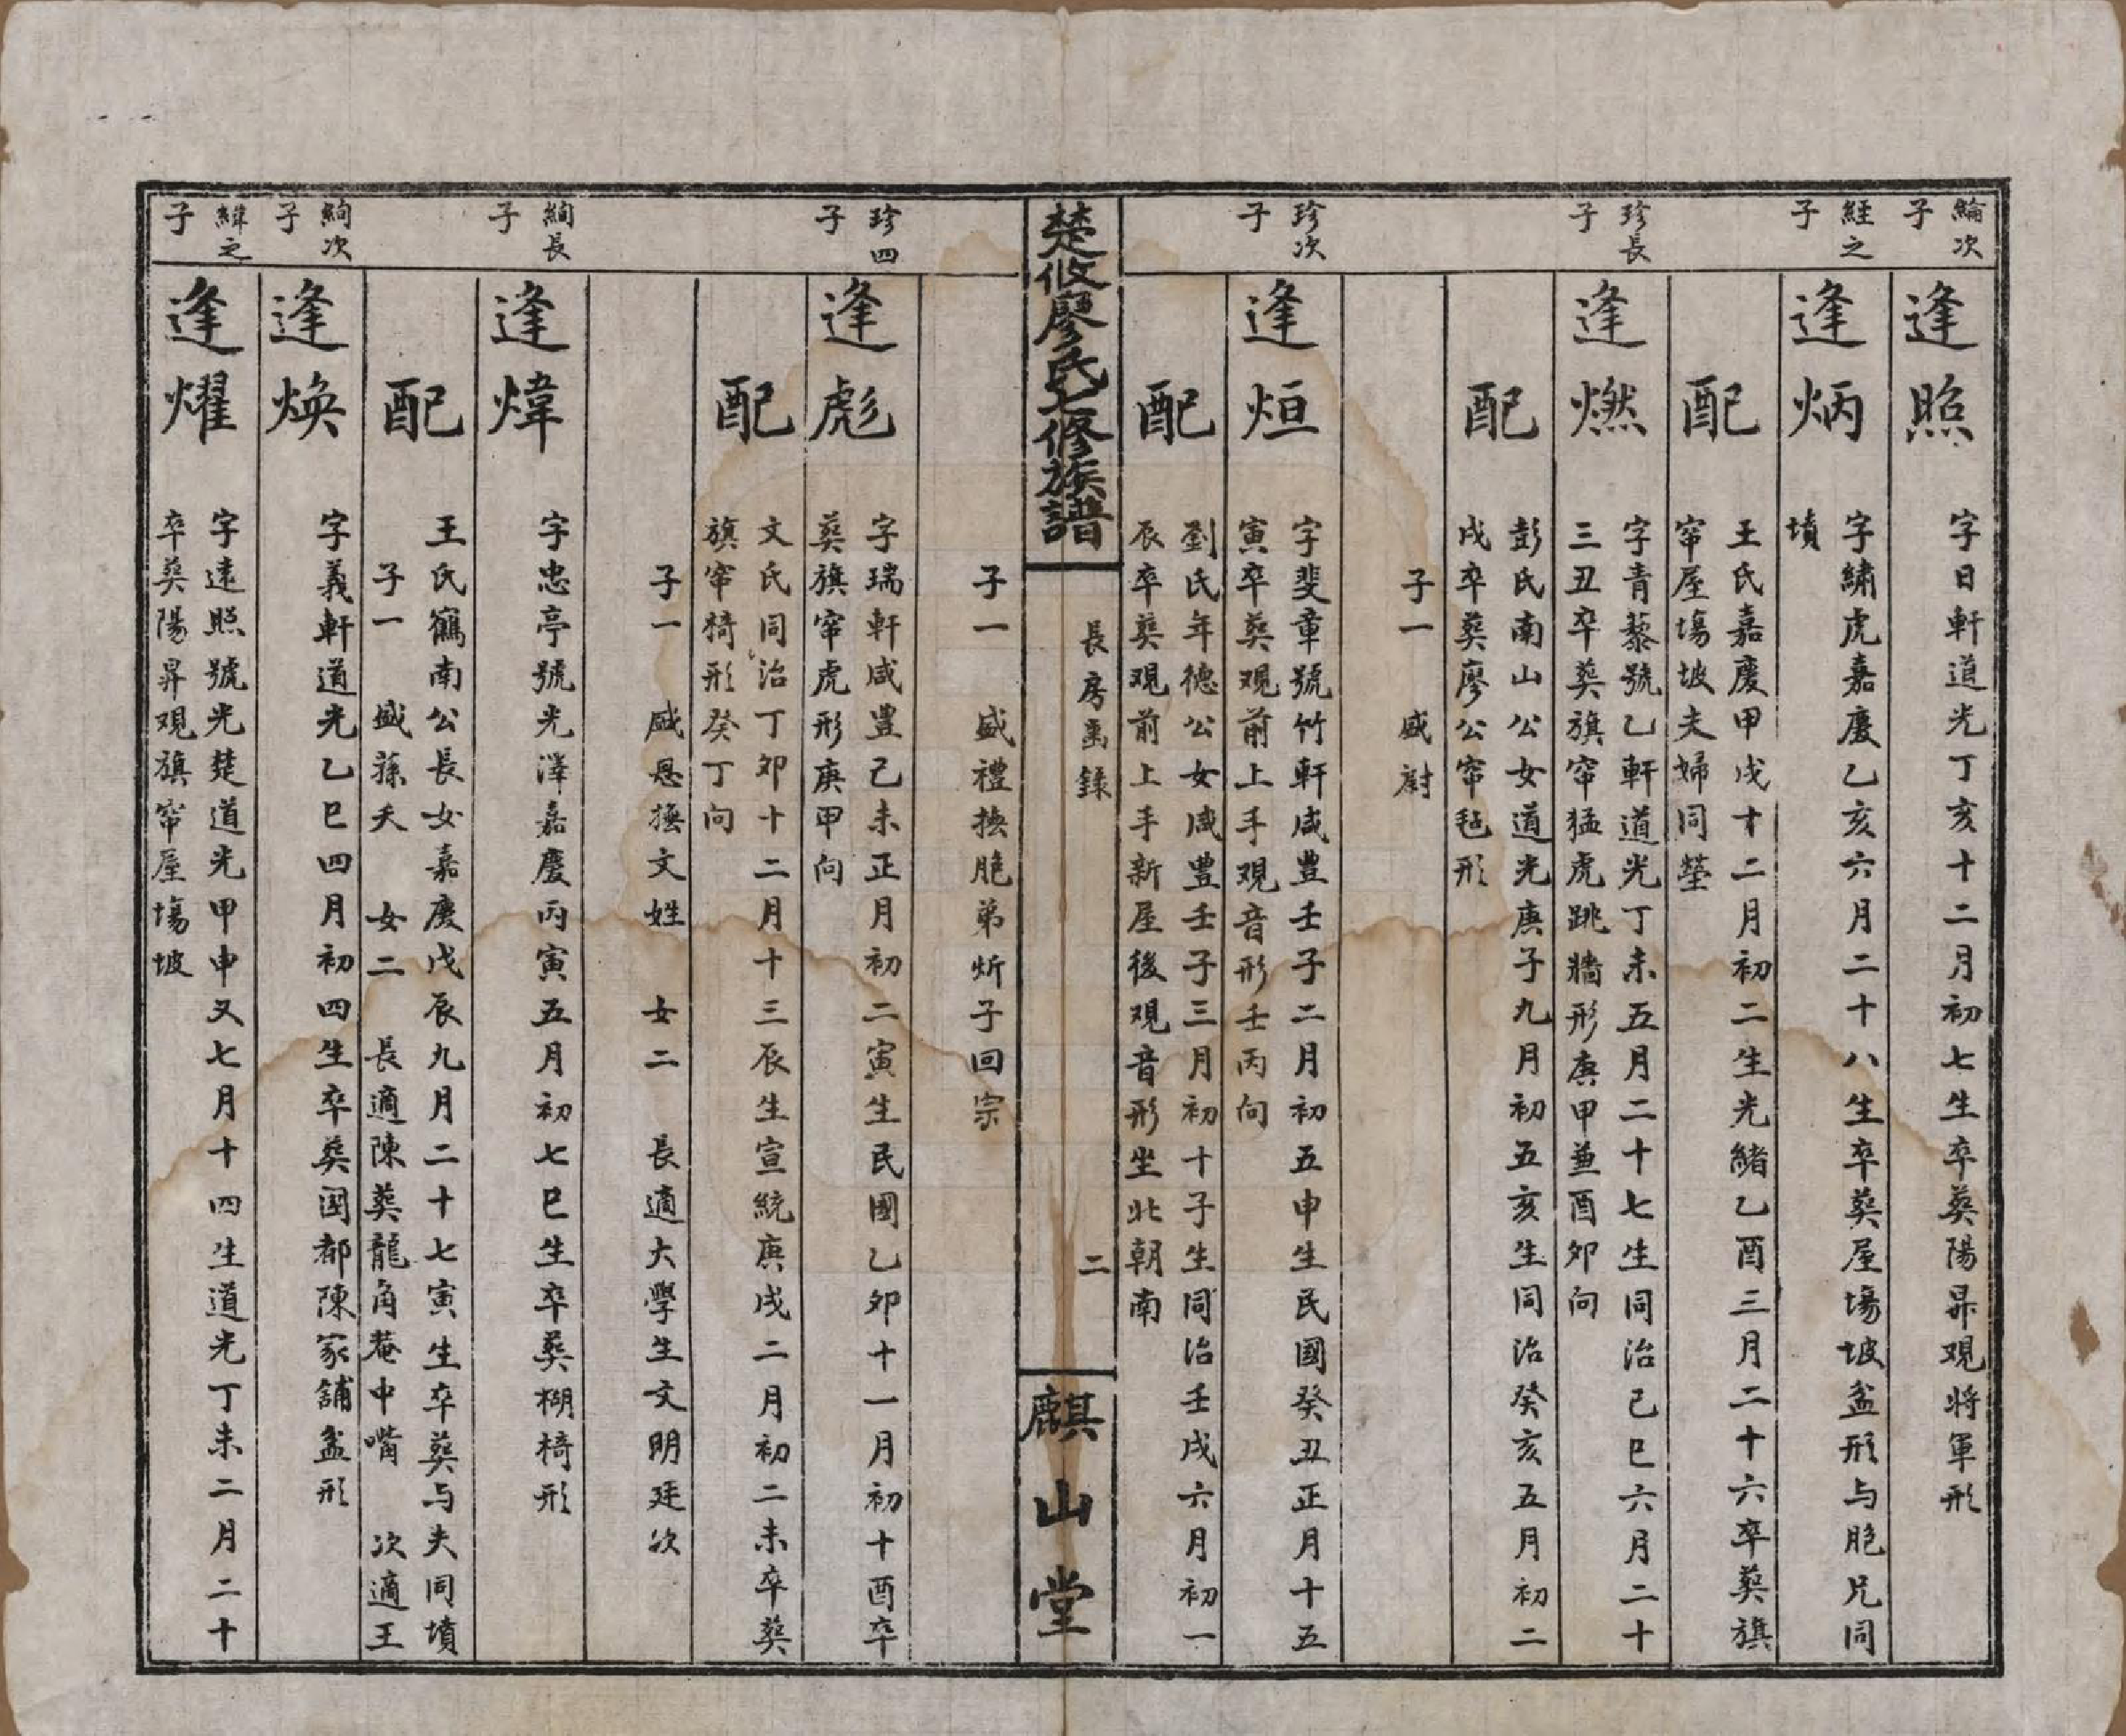 綸次子
逢照
字日軒道光丁亥十二月初七生卒葬陽昇观將軍形
經之子
逢炳
字繡虎嘉慶乙亥六月二十八生卒葬屋塲坡盆形与胞兄同
墳
配
王氏嘉慶甲戌十二月初二生光緒乙酉三月二十六卒葬旗
窂屋塲坡夫婦同塋
珍長子
逢燃
字青藜號乙軒道光丁未五月二十七生同治己巳六月二十
三丑卒葬旗窂猛虎跳牆形庚甲兼酉卯向
配
彭氏南山公女道光庚子九月初五亥生同治癸亥五月初二
戌卒葬廖公窂毡形
子一　盛尉
珍次子
逢烜
字斐章號竹軒咸豊壬子二月初五申生民國癸丑正月十五
寅卒葬观前上手观音形壬丙向
配
劉氏年德公女咸豊壬子三月初十子生同治壬戌六月初一
辰卒葬观前上手新屋後观音形坐北朝南
楚攸廖氏七修族譜
長房禹錄
二
麒山堂
子一　盛禮撫胞弟炘子回宗
珍四子
逢彪
字瑞軒咸豊己未正月初二寅生民國乙卯十一月初十酉卒
葬旗窂虎形庚甲向
配
文氏同治丁卯十二月十三辰生宣統庚戌二月初二未卒葬
旗窂犄形癸丁向
子一　盛恩撫文姓　女二　長適大學生文明廷次
絢長子
逢煒
字忠亭號光澤嘉慶丙寅五月初七巳生卒葬棚椅形
配
王氏鶴南公長女嘉慶戊辰九月二十七寅生卒葬与夫同墳
子一　盛蓀夭　女二　長適陳葬龍角菴中嘴　次適王
絢次子
逢焕
字義軒道光乙巳四月初四生卒葬国都陳家舖盆形
緯之子
逢燿
字遠照號光楚道光甲申又七月十四生道光丁未二月二十
卒葬陽昇观旗窂屋塲坡